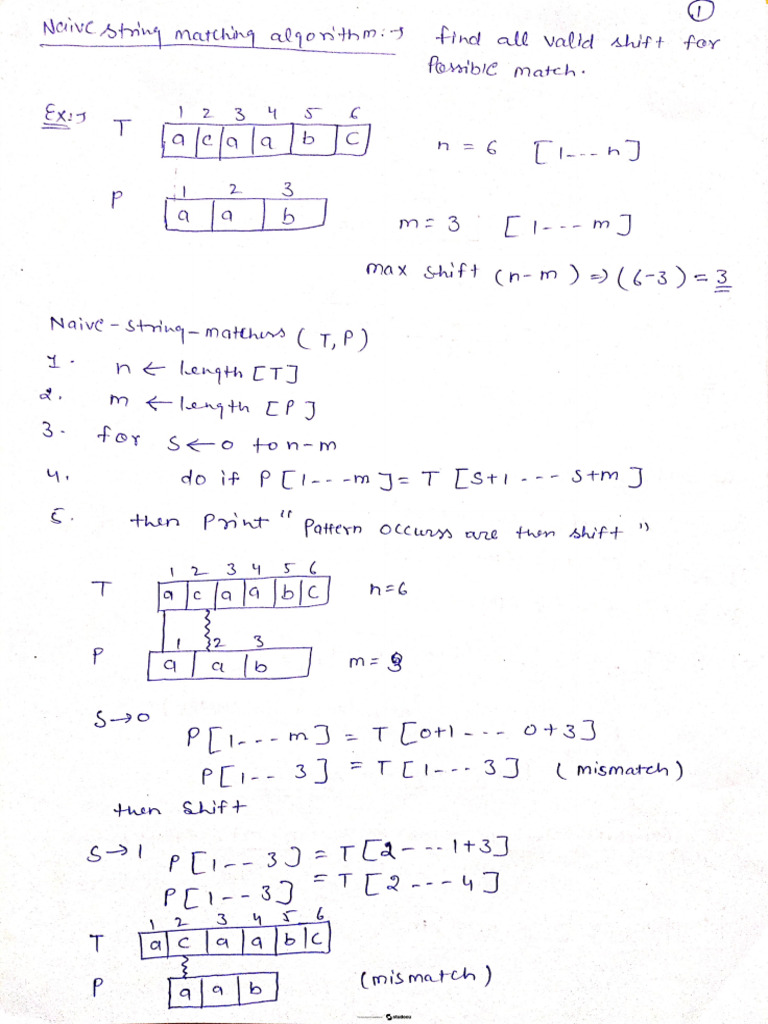 1
Naive string matching algorithm:→ find all valid shift for
Possible match.
Ex:→
1 2 3 4 5 6
T a c a a b c
n = 6 [1---n]
1 2 3
P a a b
m = 3 [1---m]
max shift (n-m) => (6-3) = 3
Naive-string-matchers (T,P)
1. n ← length [T]
2. m ← length [P]
3. for s ← 0 to n-m
4. do if P[1---m] = T [S+1 --- S+m]
5. then Print "Pattern occurss are then shift"
1 2 3 4 5 6
T a c a a b c n=6
1 2 3
P a a b m = 3
S→0
P[1---m] = T[0+1--- 0+3]
P[1-- 3] = T[1--- 3] (mismatch)
then shift
S→1 P[1--3] = T[2---1+3]
P[1--3] = T[2---4]
1 2 3 4 5 6
T a c a a b c
P a a b (mismatch)
studocu